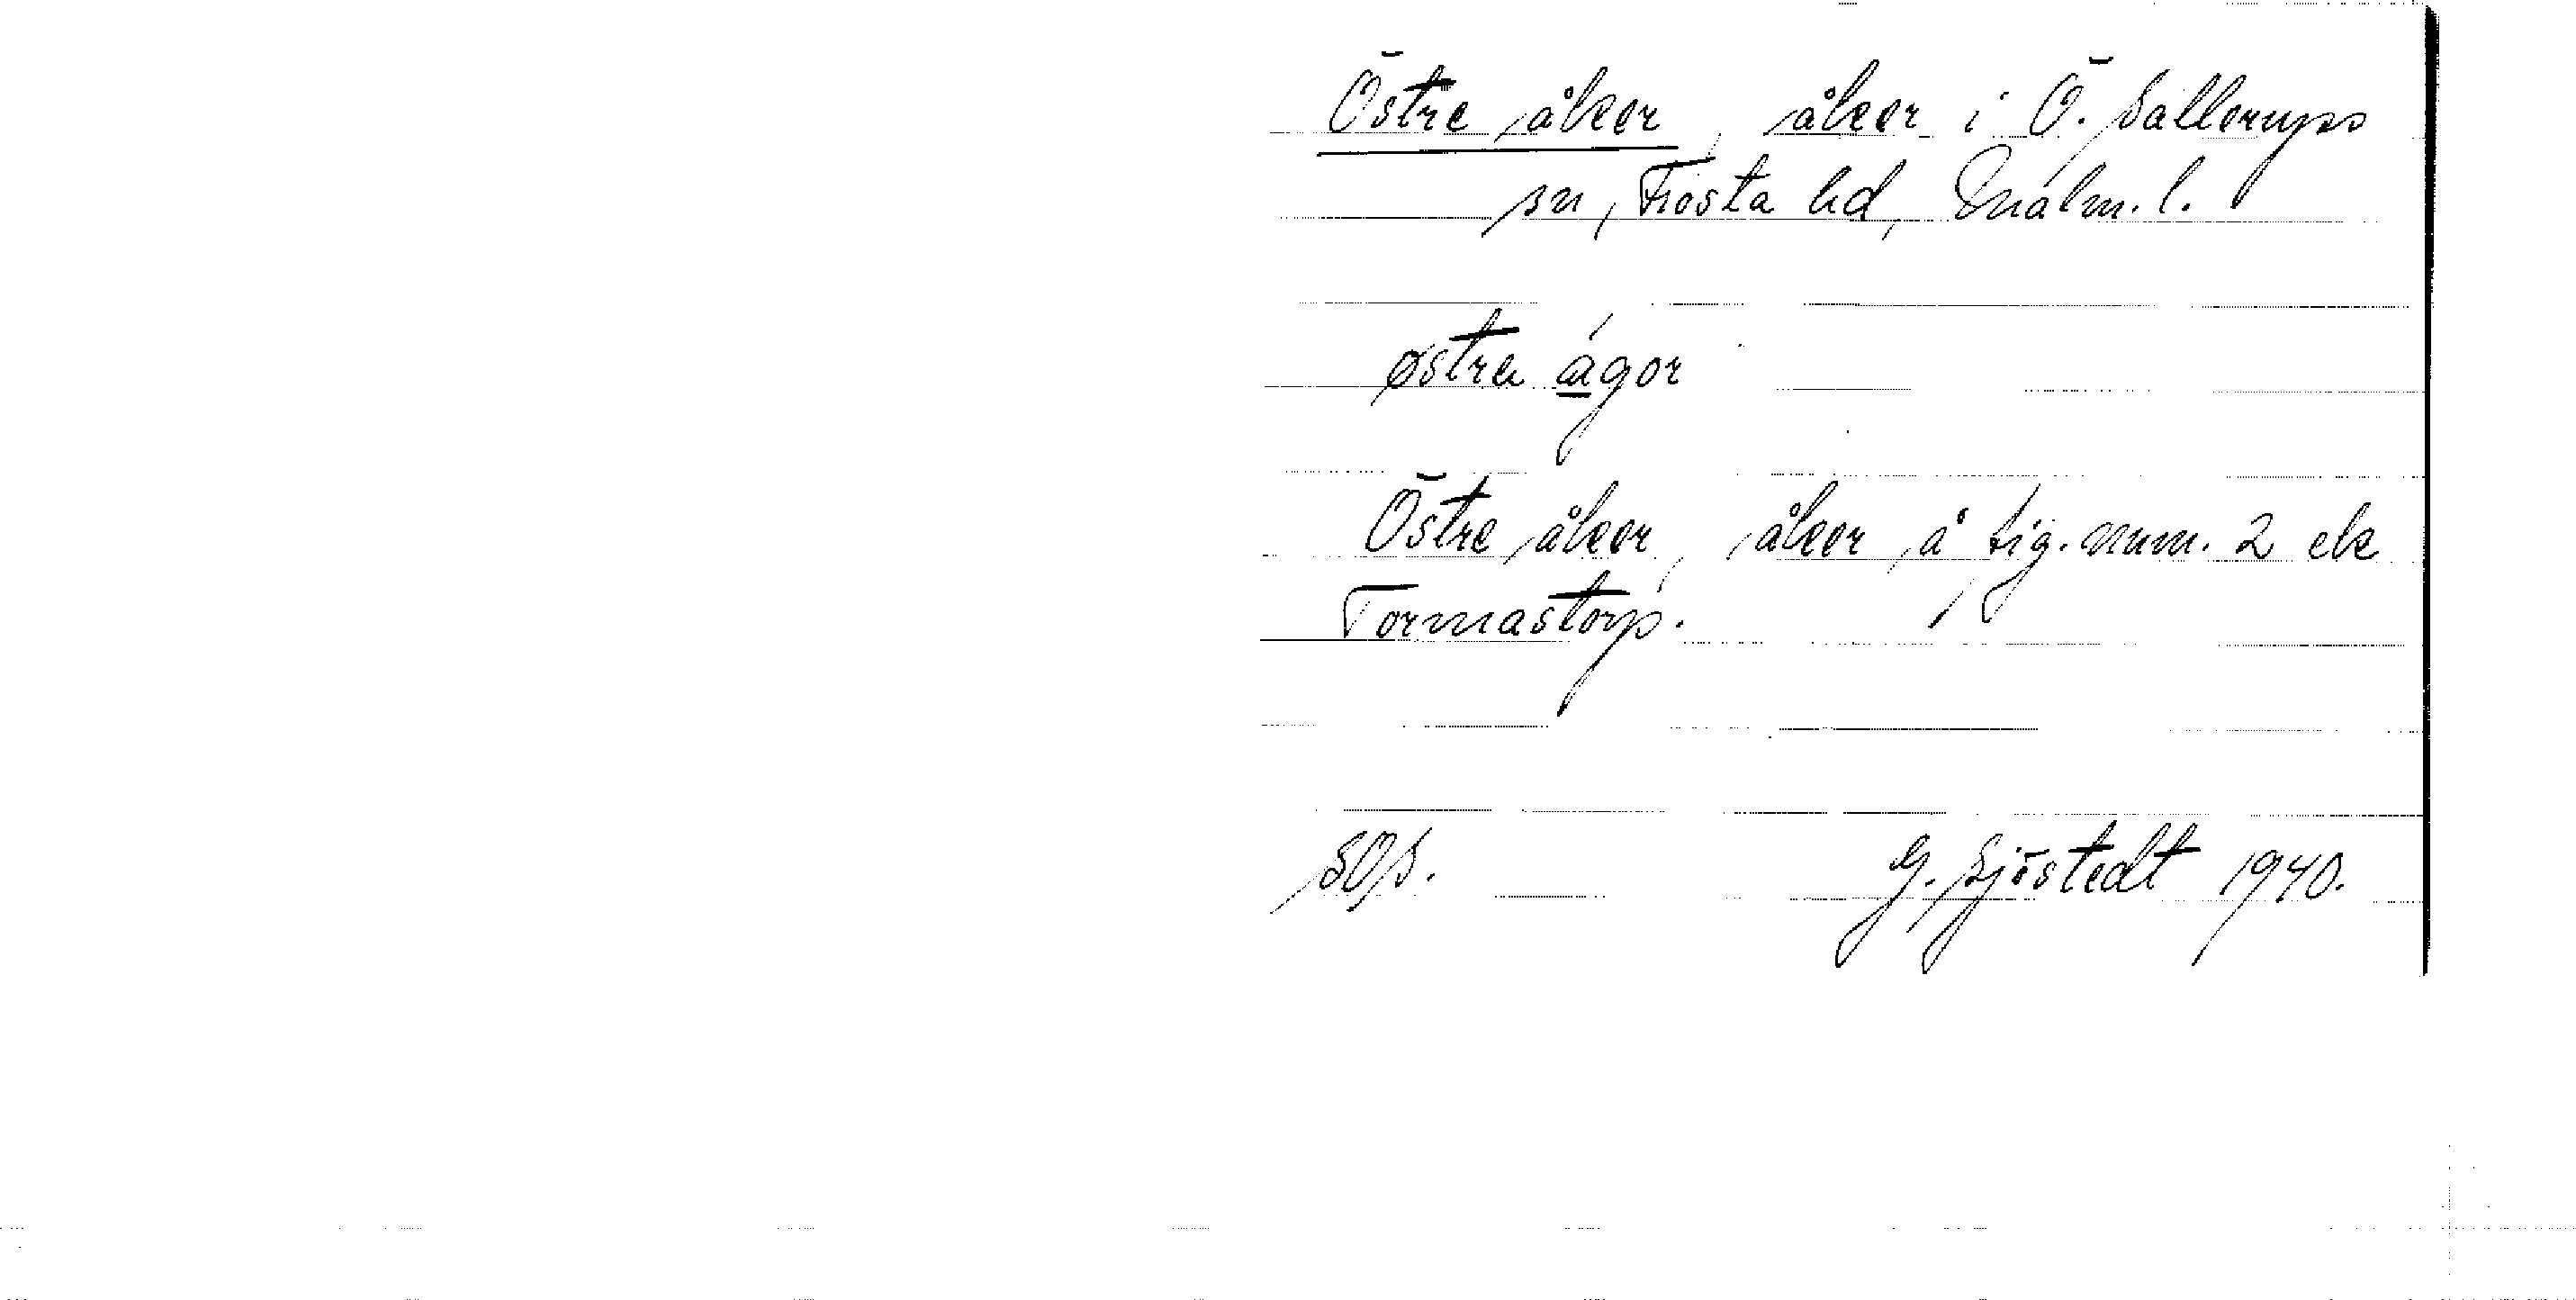 Östre åker, åker i Ö. Sallerups
sn, Frosta hd, Malm. l.
østrɐ ágor
Östre åker, åker å fig. num. 2 ek
Tormastorp.
SOS. G. Sjöstedt 1940.